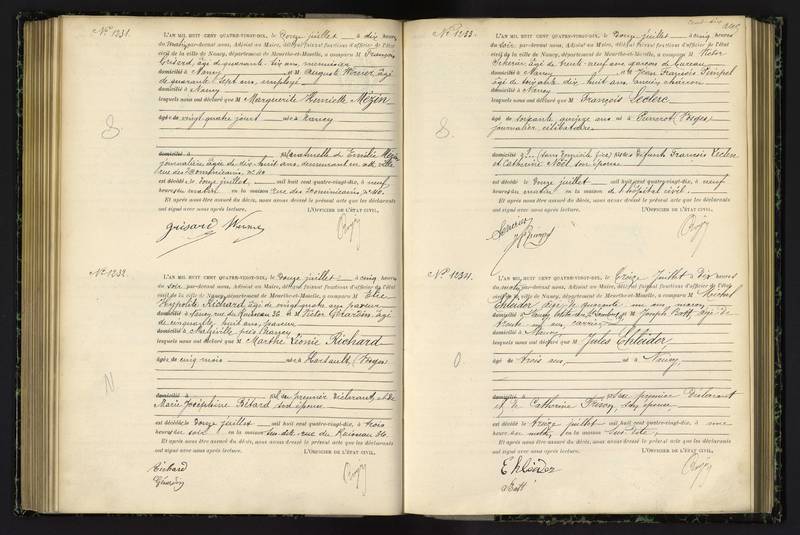 No 1231.
L'AN MIL HUIT CENT QUATRE-VINGT-DIX, le Douze juillet à dix heures
du matin, par-devant nous, Adjoint au Maire, délégué faisant fonctions d'officier de l'état
civil de la ville de Nancy, département de Meurthe-et-Moselle, a comparu M François
Grisard, âgé de quarante six ans, menuisier
domicilié à Nancy et M Auguste Werner, âgé
de quarante sept ans, employé
domicilié à Nancy
lesquels nous ont déclaré que M Marguerite Henriette Mézin
âgée de vingt quatre jours née à Nancy
domicilié à fille naturelle de Emélie Mézin
journalière, âgée de dix-huit ans, demeurant en cette ville
rue des Dominicains, No 40
est décédée le Douze juillet mil huit cent quatre-vingt-dix, à neuf
heures du matin, en la maison rue des Dominicains, No 40.
Et après nous être assuré du décès, nous avons dressé le présent acte que les déclarants
ont signé avec nous après lecture. L'OFFICIER DE L'ÉTAT CIVIL,
Grisard Werner
No 1232.
L'AN MIL HUIT CENT QUATRE-VINGT-DIX, le Douze juillet à cinq heures
du soir, par-devant nous, Adjoint au Maire, délégué faisant fonctions d'officier de l'état
civil de la ville de Nancy, département de Meurthe-et-Moselle, a comparu M Elie
Hyppolite Richard, âgé de vingt quatre ans, paveur
domicilié à Nancy rue du Ruisseau 36 et M Victor Girardin, âgé
de cinquante huit ans, paveur
domicilié à près Nancy
lesquels nous ont déclaré que M Marthe Léonie Richard
âgée de cinq mois née à Vosges
domicilié à fille du premier Déclarant, et de
Marie Joséphine Bétard son épouse
est décédée le Douze juillet mil huit cent quatre-vingt-dix, à trois
heures du soir, en la maison sus-dite, rue du Ruisseau 36.
Et après nous être assuré du décès, nous avons dressé le présent acte que les déclarants
ont signé avec nous après lecture. L'OFFICIER DE L'ÉTAT CIVIL,
Richard
Girardin
No 1233.
L'AN MIL HUIT CENT QUATRE-VINGT-DIX, le Douze juillet à cinq heures
du soir, par-devant nous, Adjoint au Maire, délégué faisant fonctions d'officier de l'état
civil de la ville de Nancy, département de Meurthe-et-Moselle, a comparu M Victor
âgé de trente-neuf ans, garçon de bureau
domicilié à Nancy et M Jean François
âgé de soixante dix huit ans, ancien
domicilié à Nancy
lesquels nous ont déclaré que M François Leclerc
âgé de soixante quinze ans né à (Vosges)
journalier célibataire
domicilié à (sans Domicile fixe) fils de Défunts François Leclerc
et Catherine Noël son épouse
est décédé le Douze juillet mil huit cent quatre-vingt-dix, à neuf
heures du matin en la maison d'hôpital civil
Et après nous être assuré du décès, nous avons dressé le présent acte que les déclarants
ont signé avec nous après lecture. L'OFFICIER DE L'ÉTAT CIVIL,
No 1234.
L'AN MIL HUIT CENT QUATRE-VINGT-DIX, le Treize Juillet à Dix heures
du matin, par-devant nous, Adjoint au Maire, délégué faisant fonctions d'officier de l'état
civil de la ville de Nancy, département de Meurthe-et-Moselle, a comparu M Michel
Ehleider, âgé de quarante un ans, maçon
domicilié à Nancy et M Joseph Bott, âgé de
trente un ans, carrier
domicilié à Nancy
lesquels nous ont déclaré que M Jules Ehleider,
âgé de trois ans, né à Nancy,
domicilié à fils du premier Déclarant
et de Catherine son épouse,
est décédé le treize juillet mil huit cent quatre-vingt-dix, à une
heure du matin, en la maison sus-dite.
Et après nous être assuré du décès, nous avons dressé le présent acte que les déclarants
ont signé avec nous après lecture. L'OFFICIER DE L'ÉTAT CIVIL,
Ehleider
Bott